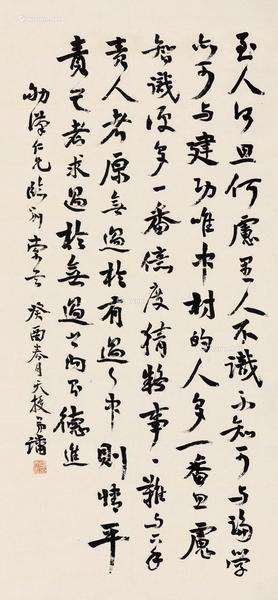 至人何思何慮愚人不識不知可與論學
亦可與建功唯中材的人多一番思慮
智識便多一番億度猜疑事〻難與下手
責人者原無過於有過之中則情平
責己者求過於無過之內則德進
漢仁兄臨別 癸酉春月天弟